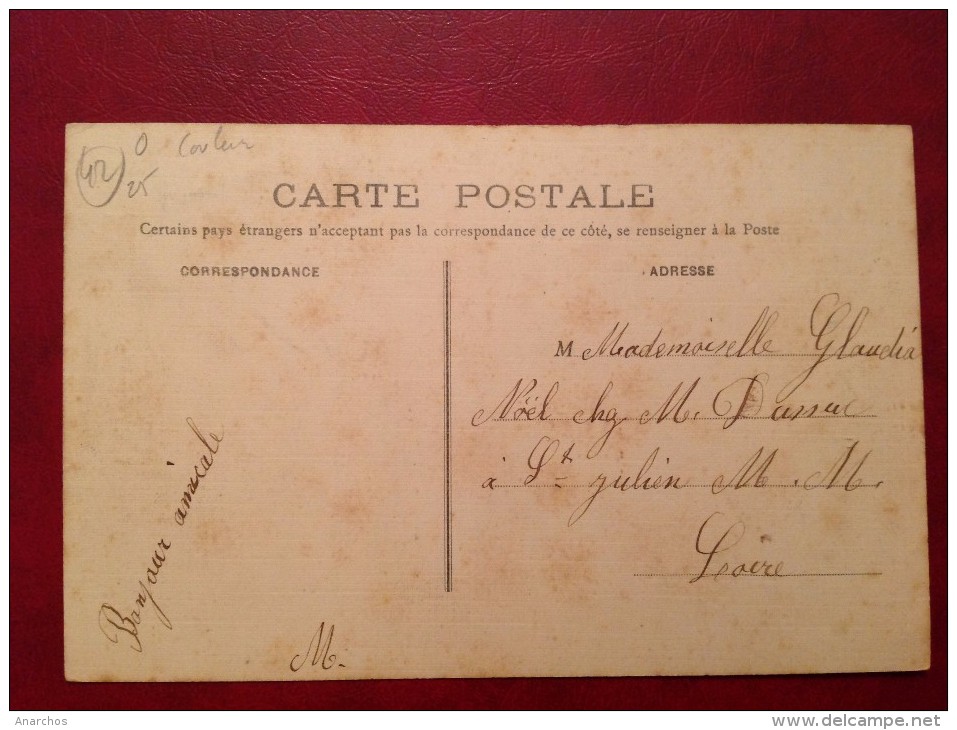 42
0
25
Couleur
CARTE POSTALE
Certains pays étrangers n'acceptant pas la correspondance de ce côté, se renseigner à la Poste
CORRESPONDANCE
ADRESSE
Bonjour amicale
M.
M Mademoiselle Glaudia
Noël chez M.
à St julien M. M.
Loire
Anarchos
delcampe.net